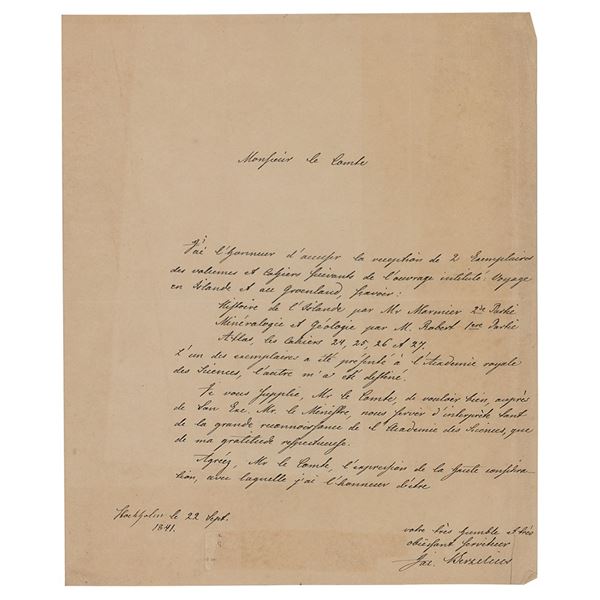 Monsieur le Comte
J'ai l'honneur d'accuser la reception de 2 Exemplaires
des volumes et Cahiers suivants de l'ouvrage intitulé: Voyage
en Islande et au Groenland, savoir:
Histoire de l'Islande par Mr Marmier 2de Partie
Minéralogie et Géologie par M. Robert 1ere Partie
Atlas, les Cahiers 24, 25, 26 et 27.
L'un des exemplaires a été présenté à l'Academie royale
des Sciences, l'autre m'a été destiné.
Je vous supplie, Mr. le Comte, de vouloir bien, auprès
de Son Exc. Mr. le Ministre, nous servir d'interprète tant
de la grande reconnoissance de l'Academie des Sciences, que
de ma gratitude respectueuse.
Agréez, Mr le Comte, l'expression de la haute considéra-
tion, avec laquelle j'ai l'honneur d'être
Stockholm le 22 Sept.
1841.
votre très humble et très
obéissant serviteur
Jac. Berzelius